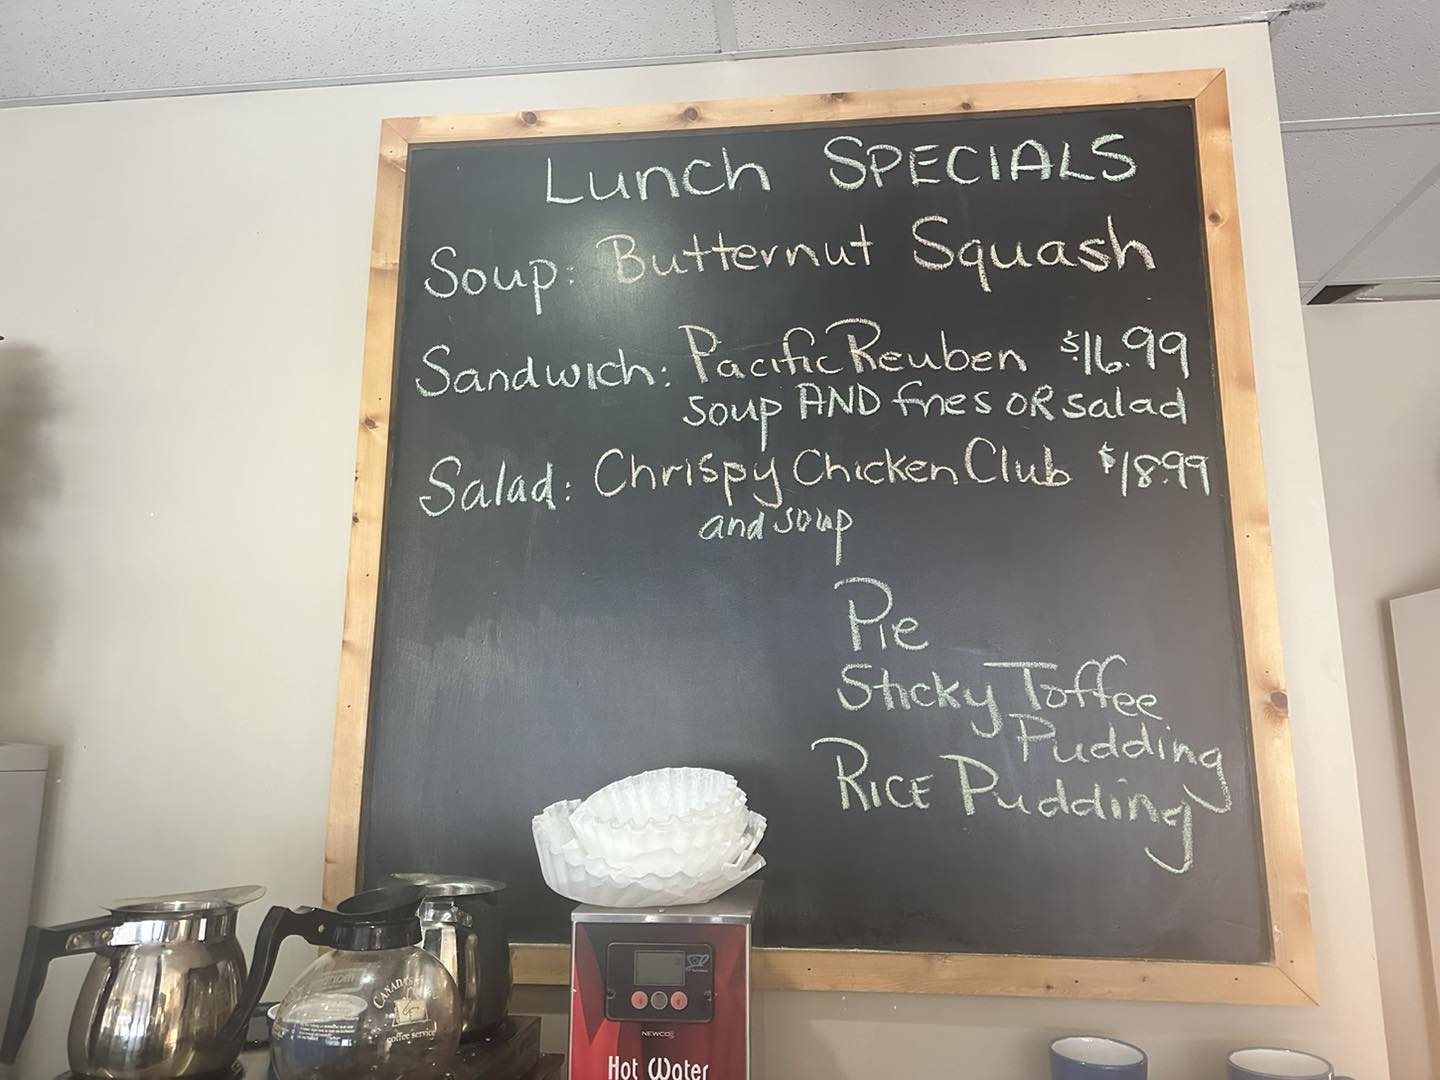 Lunch SPECIALS
Soup: Butternut Squash
Sandwich: Pacific Reuben $16.99
soup AND fries OR salad
Salad: Chrispy Chicken Club $18.99
and soup
Pie
Sticky Toffee
Pudding
RICE Pudding
CANADA'S
coffee service
NEWCO
Hot Water